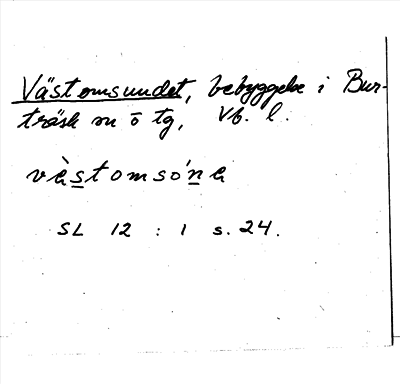 Västomsundet, bebyggelse i Bur-
träsk sn o tg, Vb. l.
vàs̲tomsón̲a
SL 12 : 1 s. 24.